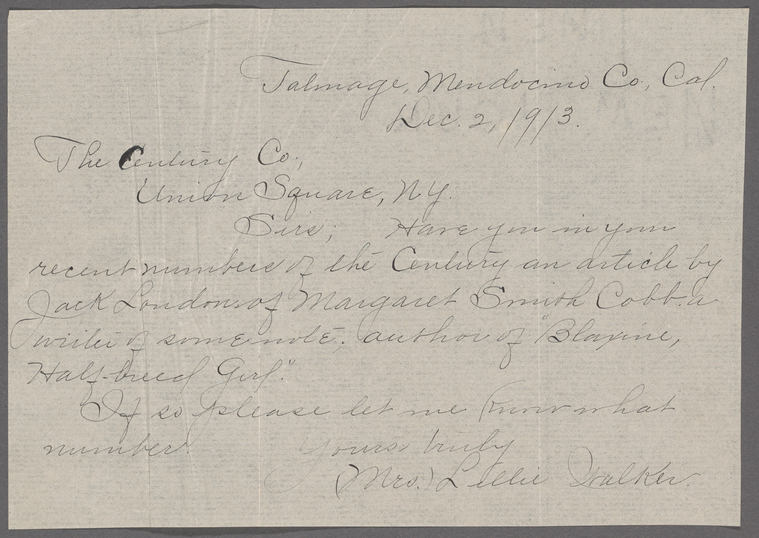 Talmage, Mendocino Co., Cal.
Dec. 2, 1913.
The Century Co.,
Union Square, N.Y.
Sirs; Have you in your
recent numbers of the Century an article by
Jack London of Margaret Smith Cobb a
writer of some note, author of "Blaxine,
Half-breed Girl".
If so please let me know what
number.
Yours truly
(Mrs.) Lillie Walker.